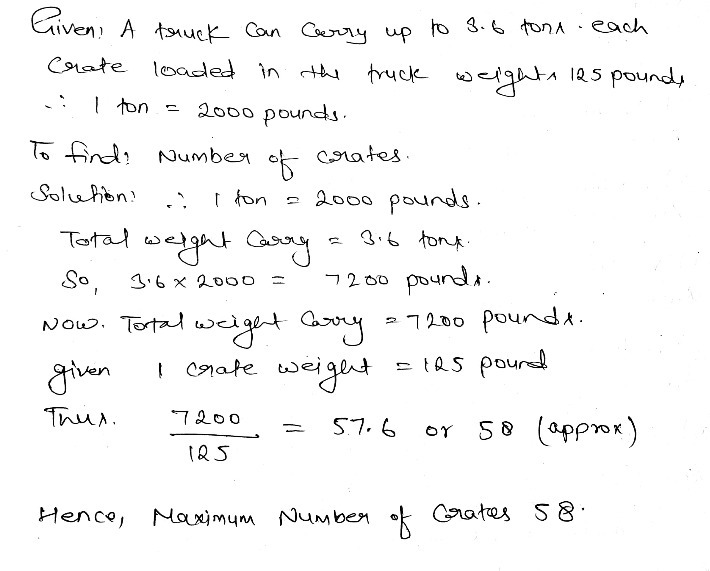 Given: A truck can carry up to 3.6 tons. each
crate loaded in the truck weights 125 pounds
∴ 1 ton = 2000 pounds.
To find: Number of crates.
Solution: ∴ 1 ton = 2000 pounds.
Total weight carry = 3.6 tons.
So, 3.6 × 2000 = 7200 pounds.
Now. Total weight carry = 7200 pounds.
given 1 crate weight = 125 pound
Thus. 7200/125 = 57.6 or 58 (approx)
Hence, Maximum Number of Crates 58.